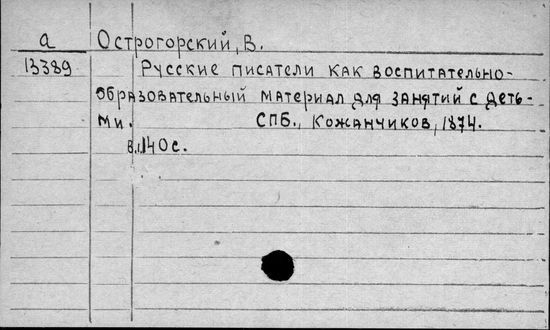 а Острогорский, В.
13389 Русские писатели как воспитательно-
образовательный материал для занятий с деть-
ми. СПБ., Кожанчиков, 1874.
140с.